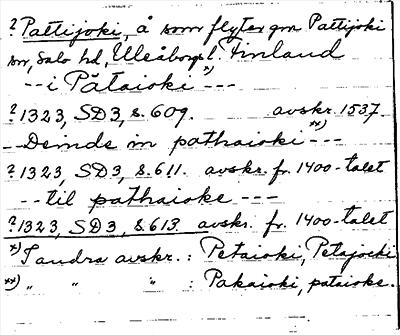 ? Pattijoki, å som flyter gm Pattijoki
sn, Salo hd, Uleåborgs l. Finland
-- i Pätaioki *) ---
? 1323, SD 3, s. 609. avskr. 1537.
-- Deinde in pathaioki **) ---
? 1323, SD 3, s. 611. avskr. fr. 1400-talet
-- til pathaioke ---
? 1323, SD 3, s. 613. avskr. fr. 1400-talet
*) I andra avskr.: Petaioki, Petajocki
**) " " " : Pakaioki, pataioke.